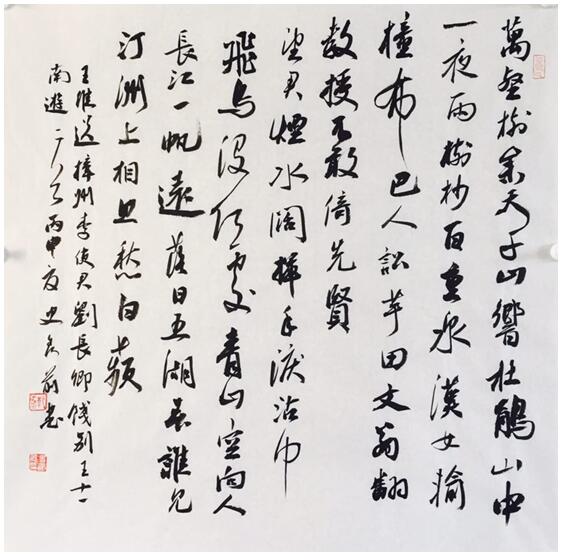 萬壑樹參天千山響杜鵑山中
一夜雨樹杪百重泉漢女輸
橦布巴人訟芋田文翁翻
教授不敢倚先賢
望君煙水闊揮手淚沾巾
飛鳥沒何處青山空向人
長江一帆遠落日五湖春誰見
汀洲上相思愁白蘋
王維送梓州李使君劉長卿餞别王十一
南遊丙申夏史書